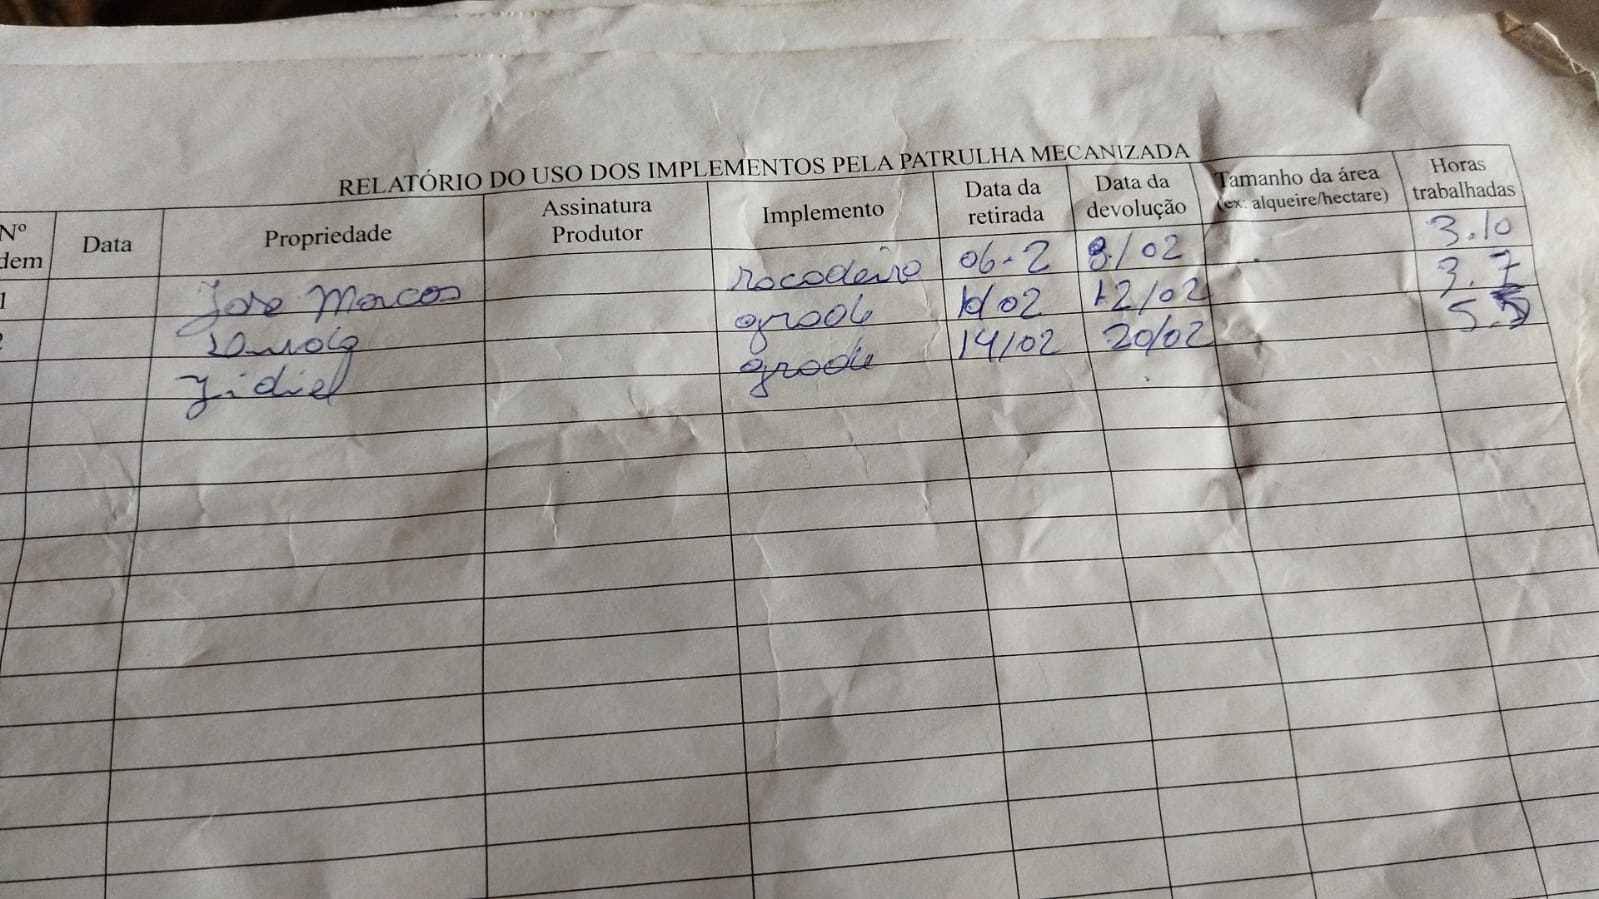 RELATÓRIO DO USO DOS IMPLEMENTOS PELA PATRULHA MECANIZADA
Nº dem Data Propriedade Assinatura Produtor Implemento Data da retirada Data da devolução Tamanho da área (ex: alqueire/hectare) Horas trabalhadas
1 Jose Marcos rocadeira 06-2 8/02 3.10
2 grade 10/02 12/02 3.7
Jidiel grade 14/02 20/02 5.5